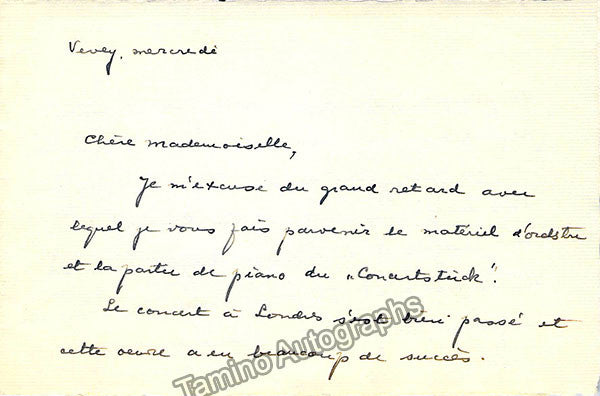 Vevey, mercredi
Chère Mademoiselle,
Je m'excuse du grand retard avec
lequel je vous fais parvenir le matériel d'orchstre
et la partie de piano du „Concertstück".
Le concert à Londres s'est bien passé et
cette oeuvre a eu beaucoup de succès.
Tamino Autographs